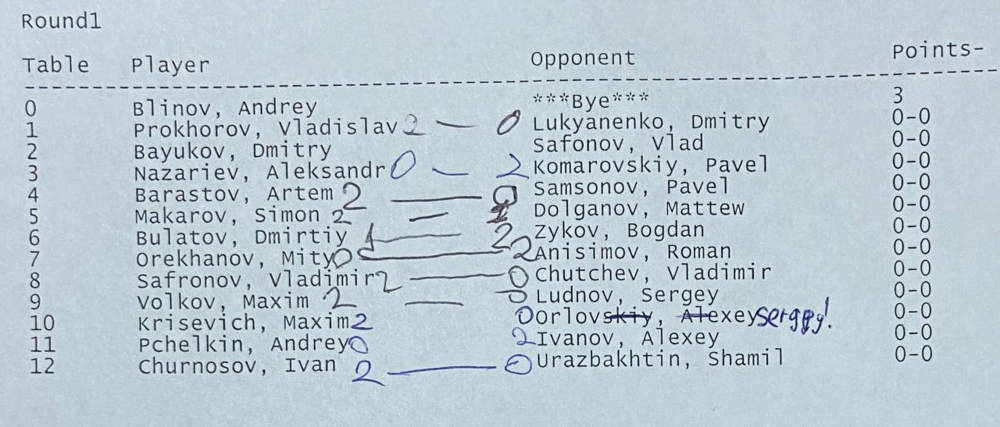 Round1
Table Player Opponent Points-
0 Blinov, Andrey ***Bye*** 3
1 Prokhorov, Vladislav 2 — 0 Lukyanenko, Dmitry 0-0
2 Bayukov, Dmitry Safonov, Vlad 0-0
3 Nazariev, Aleksandr 0 — 2 Komarovskiy, Pavel 0-0
4 Barastov, Artem 2 — 0 Samsonov, Pavel 0-0
5 Makarov, Simon 2 — Dolganov, Mattew 0-0
6 Bulatov, Dmirtiy 1 — 2 Zykov, Bogdan 0-0
7 Orekhanov, Mity 0 — 2 Anisimov, Roman 0-0
8 Safronov, Vladimir 2 — 0 Chutchev, Vladimir 0-0
9 Volkov, Maxim 2 — 0 Ludnov, Sergey 0-0
10 Krisevich, Maxim 2 0 Orlovskiy, Alexey Serggy! 0-0
11 Pchelkin, Andrey 0 2 Ivanov, Alexey 0-0
12 Churnosov, Ivan 2 — 0 Urazbakhtin, Shamil 0-0